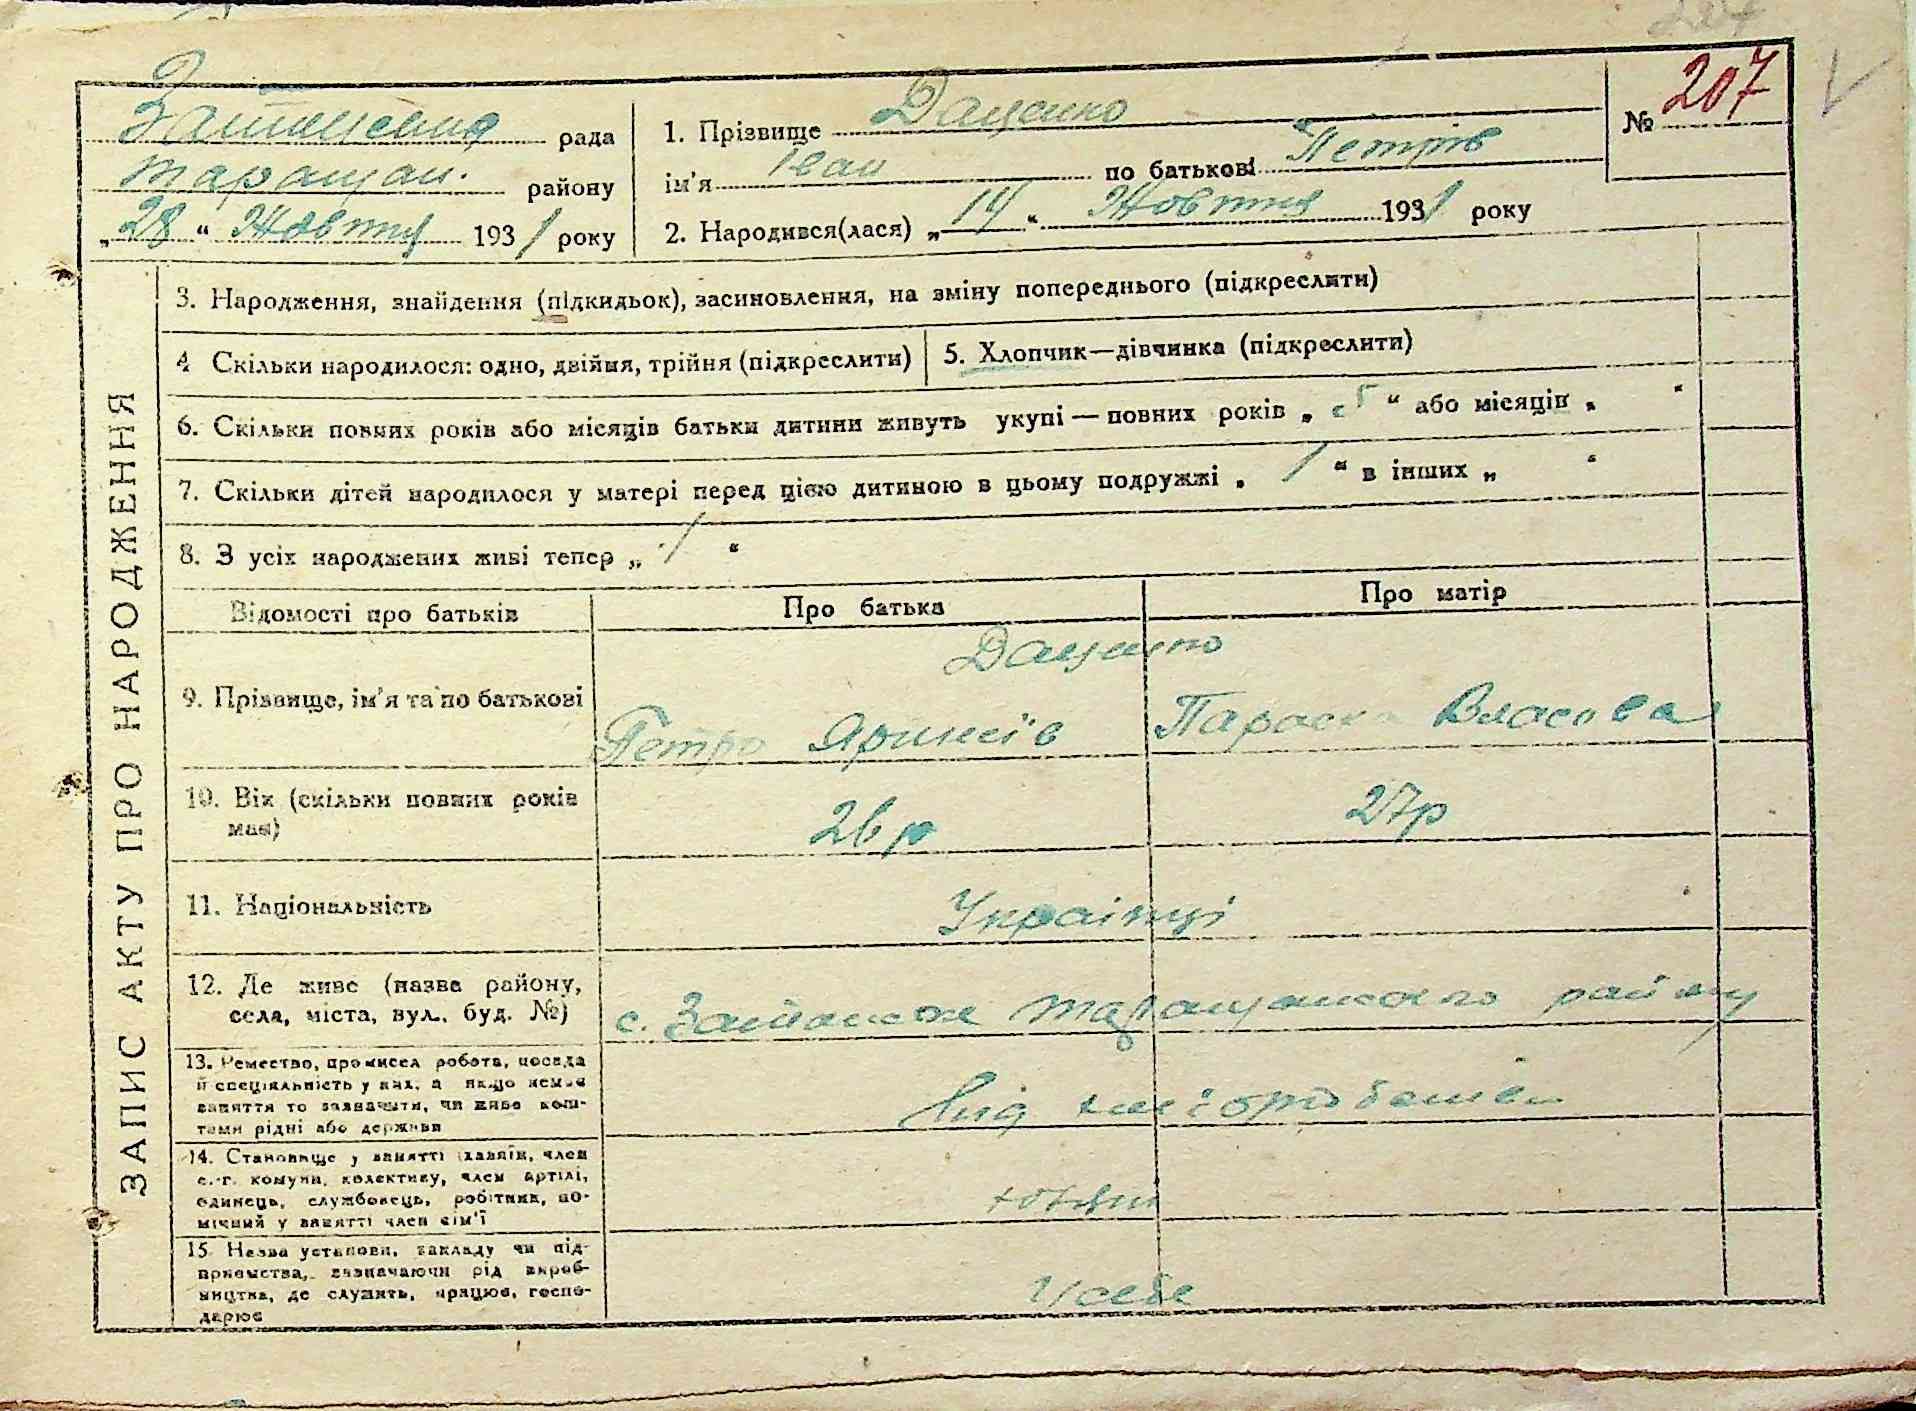 207
рада
таращан. району
„28“ Жовтня 1931 року
1. Прізвище Даценко
ім'я Іван по батькові Петрів
2. Народився(лася) „14“ Жовтня 1931 року
№ 207
ЗАПИС АКТУ ПРО НАРОДЖЕННЯ
3. Народження, знайдення (підкидьок), засиновлення, на зміну попереднього (підкреслити)
4 Скільки народилося: одно, двійня, трійня (підкреслити)
5. Хлопчик—дівчинка (підкреслити)
6. Скільки повних років або місяців батьки дитини живуть укупі — повних років „ 5 “ або місяців „ “
7. Скільки дітей народилося у матері перед цією дитиною в цьому подружжі „ 1 “ в інших „ “
8. З усіх народжених живі тепер „ 1 “
Відомості про батьків
Про батька
Про матір
Даценко
9. Прізвище, ім'я та по батькові
Петро
Параска Власова
10. Вік (скільки повних років
має)
26 р
27р
11. Національність
Українці
12. Де живе (назва району,
села, міста, вул., буд. №)
с. Таращанського району
13. Ремество, промисел робота, посада
й спеціяльність у них, а якщо немає
заняття то зазначити, чи живе кош-
тами рідні або держави
Від
14. Становище у занятті (хазяїн, член
с.-г. комуни, колективу, член артілі,
одинець, службовець, робітник, по-
мічний у занятті член сім'ї
15. Назва установи, закладу чи під-
приємства, зазначаючи рід вироб-
ництва, де служить, працює, госпо-
дарює
У себе